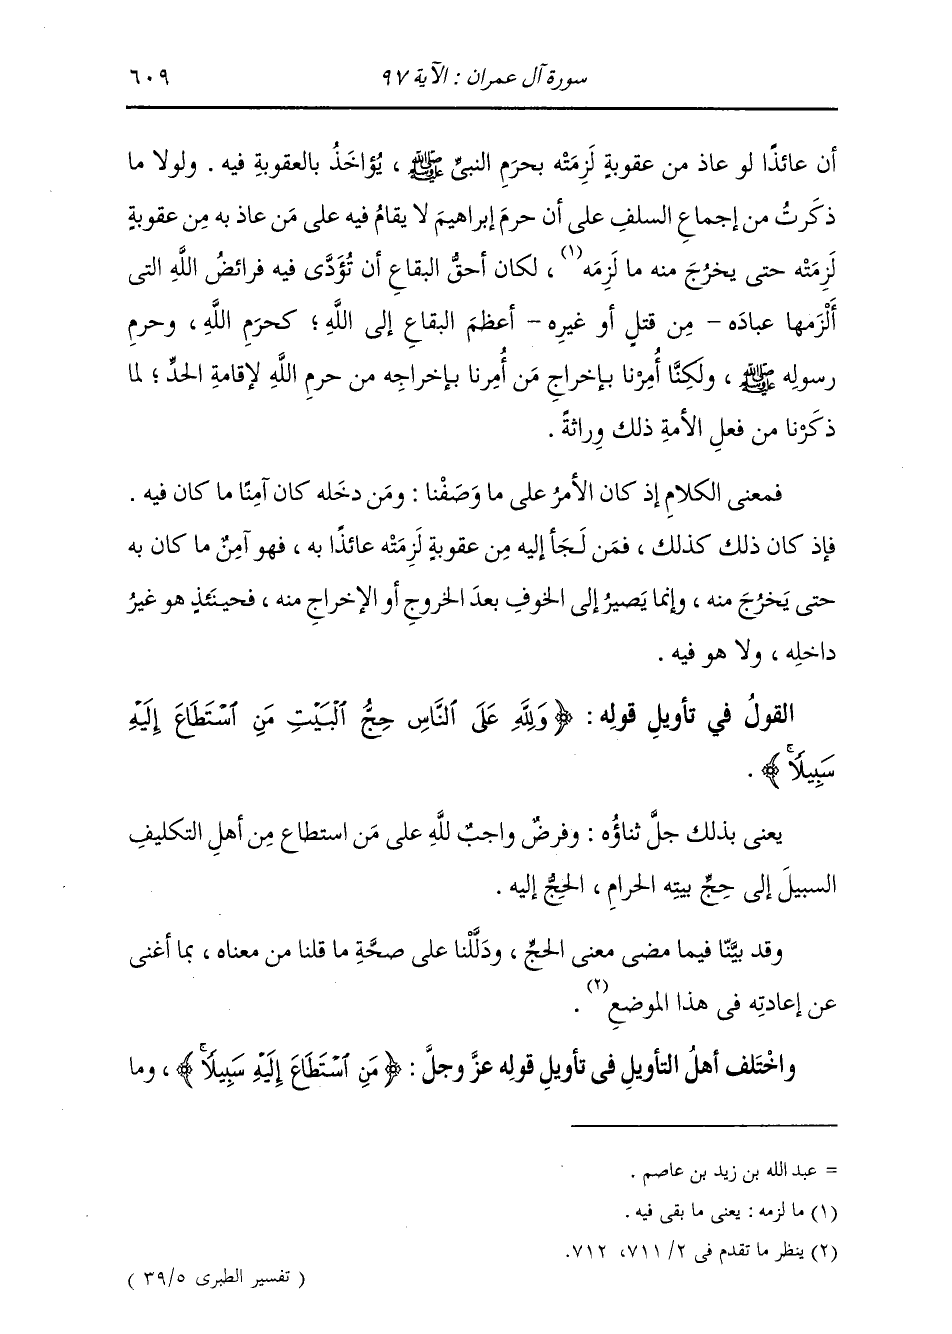 سورة آل عمران : الآية ٩٧ ٦٠٩
أن عائذًا لو عاذ من عقوبةٍ لَزِمَتْه بحرَمِ النبىِّ ﷺ ، يُؤاخَذُ بالعقوبةِ فيه . ولولا ما
ذكَرتُ من إجماعِ السلفِ على أن حرمَ إبراهيمَ لا يقامُ فيه على مَن عاذ به مِن عقوبةٍ
لَزِمَتْه حتى يخرُجَ منه ما لَزِمَه(١) ، لكان أحقُّ البقاعِ أن تُؤَدَّى فيه فرائضُ اللَّهِ التى
أَلْزَمها عبادَه – مِن قتلٍ أو غيرِه – أعظمَ البقاعِ إلى اللَّهِ ؛ كحرَمِ اللَّهِ ، وحرمِ
رسولِه ﷺ ، ولَكِنَّا أُمِرْنا بإخراجِ مَن أُمِرنا بإخراجِه من حرمِ اللَّهِ لإقامةِ الحدِّ ؛ لما
ذكَرْنا من فعلِ الأمةِ ذلك وِراثةً .
فمعنى الكلامِ إذ كان الأمرُ على ما وَصَفْنا : ومَن دخَله كان آمِنًا ما كان فيه .
فإذ كان ذلك كذلك ، فمَن لَجَأ إليه مِن عقوبةٍ لَزِمَتْه عائذًا به ، فهو آمِنٌ ما كان به
حتى يَخرُجَ منه ، وإنما يَصيرُ إلى الخوفِ بعدَ الخروجِ أو الإخراجِ منه ، فحينَئذٍ هو غيرُ
داخلِه ، ولا هو فيه .
القولُ في تأويلِ قولِه : ﴿ وَلِلَّهِ عَلَى ٱلنَّاسِ حِجُّ ٱلْبَيْتِ مَنِ ٱسْتَطَاعَ إِلَيْهِ
سَبِيلًاۚ ﴾ .
يعنى بذلك جلَّ ثناؤُه : وفرضٌ واجبٌ للَّهِ على مَن استطاع مِن أهلِ التكليفِ
السبيلَ إلى حِجِّ بيتِه الحرامِ ، الحِجُّ إليه .
وقد بيَّنّا فيما مضى معنى الحجِّ ، ودَلَّلْنا على صحَّةِ ما قلنا من معناه ، بما أغنى
عن إعادتِه فى هذا الموضعِ(٢) .
واخْتَلف أهلُ التأويلِ فى تأويلِ قولِه عزَّ وجلَّ : ﴿ مَنِ ٱسْتَطَاعَ إِلَيْهِ سَبِيلًاۚ ﴾ ، وما
= عبد الله بن زيد بن عاصم .
(١) ما لزمه : يعنى ما بقى فيه .
(٢) ينظر ما تقدم فى ٢/ ٧١١، ٧١٢.
( تفسير الطبرى ٣٩/٥ )